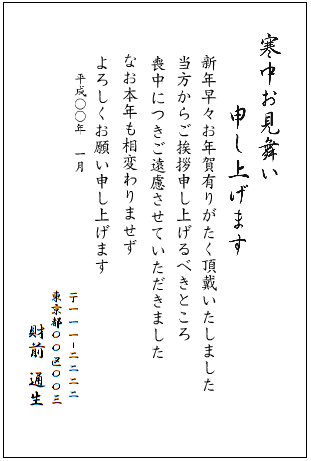 寒中お見舞い
申し上げます
新年早々お年賀有りがたく頂戴いたしました
当方からご挨拶申し上げるべきところ
喪中につきご遠慮させていただきました
なお本年も相変わりませず
よろしくお願い申し上げます
平成〇〇年　一月
〒一一一-二二二二
東京都〇〇区〇〇三
財前　通生